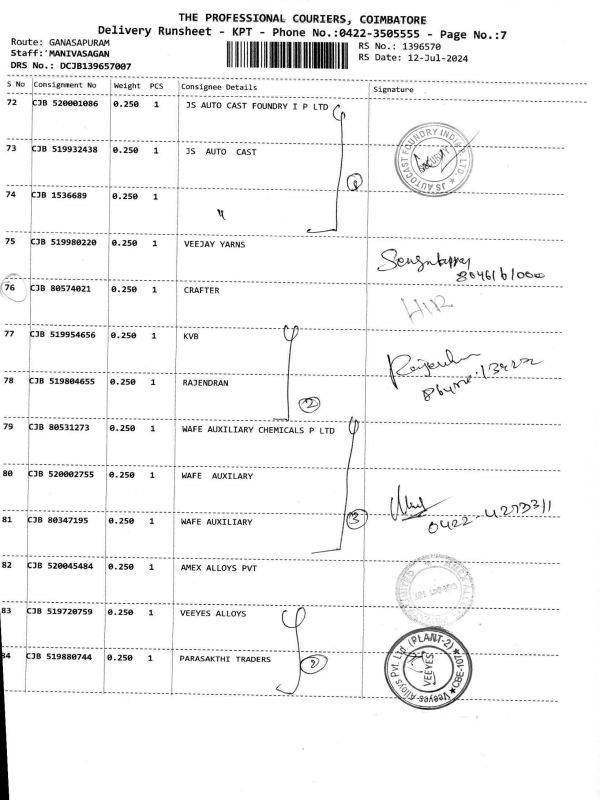 THE PROFESSIONAL COURIERS, COIMBATORE
Delivery Runsheet - KPT - Phone No.:0422-3505555 - Page No.:7
Route: GANASAPURAM
RS No.: 1396570
Staff: MANIVASAGAN
RS Date: 12-Jul-2024
DRS No.: DCJB139657007
S No Consignment No Weight PCS Consignee Details Signature
72 CJB 520001086 0.250 1 JS AUTO CAST FOUNDRY I P LTD
JS AUTOCAST FOUNDRY INDIA P LTD.
SECURITY
73 CJB 519932438 0.250 1 JS AUTO CAST
74 CJB 1536689 0.250 1 "
75 CJB 519980220 0.250 1 VEEJAY YARNS
76 CJB 80574021 0.250 1 CRAFTER
77 CJB 519954656 0.250 1 KVB
78 CJB 519804655 0.250 1 RAJENDRAN
2
79 CJB 80531273 0.250 1 WAFE AUXILIARY CHEMICALS P LTD
80 CJB 520002755 0.250 1 WAFE AUXILARY
81 CJB 80347195 0.250 1 WAFE AUXILIARY
3
0422-4273311
82 CJB 520045484 0.250 1 AMEX ALLOYS PVT
83 CJB 519720759 0.250 1 VEEYES ALLOYS
84 CJB 519880744 0.250 1 PARASAKTHI TRADERS
2
Veeyes Alloys Pvt. Ltd (PLANT-2) CBE-107
VEEYES